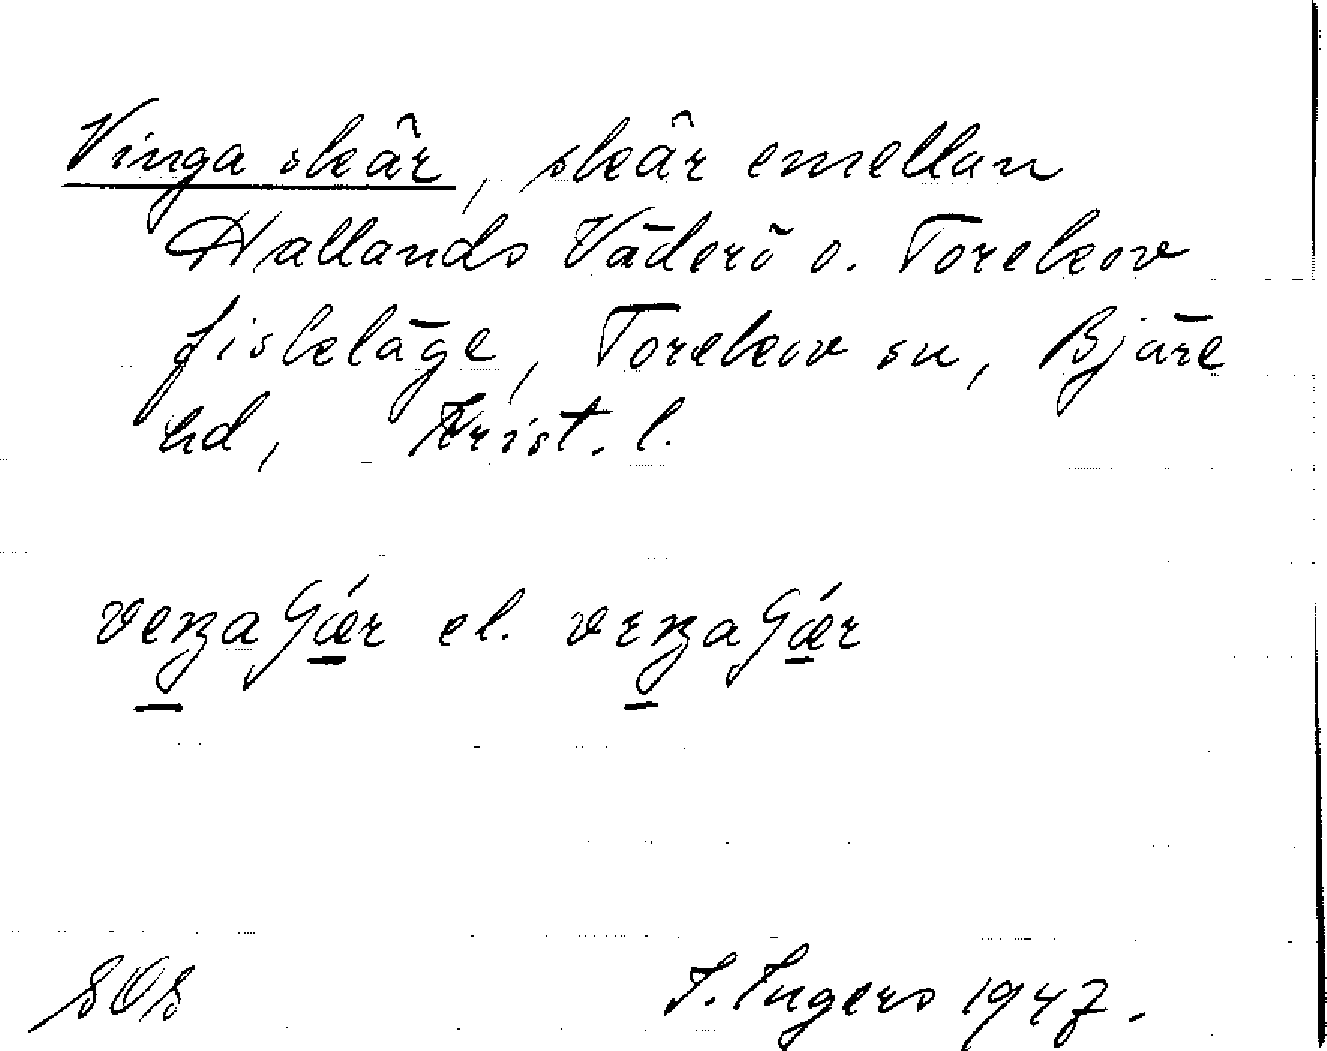 Vinga skär, skär emellan
Hallands Väderö o. Torekov
fiskeläge, Torekov sn, Bjäre
hd, Krist. l.
el.
I. Ingers 1947.